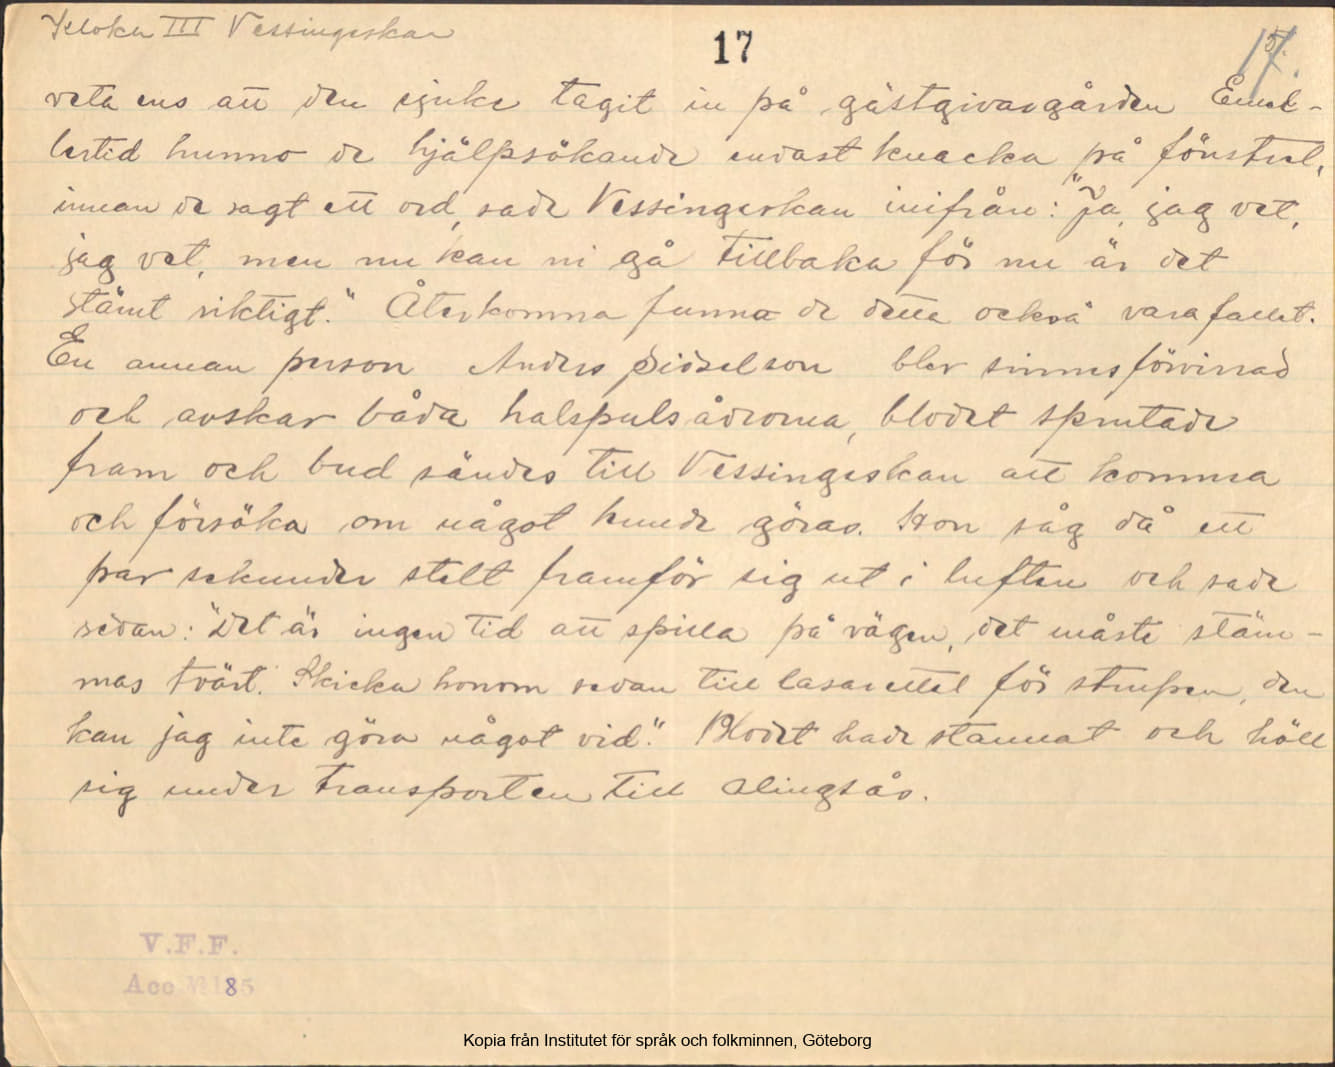 Kloka III Vessingeskan
17
17.
veta ens att den sjuke tagit in på gästgivargården Emel-
lertid hunno de hjälpsökande endast knacka på fönstret,
innan de sagt ett ord, sade Vessingeskan inifrån: "Ja, jag vet,
jag vet, men nu kan ni gå tillbaka för nu är det
stämt riktigt." Återkomna funno de detta också vara fallet.
En annan person Anders blev sinnesförvirrad
och avskar båda halspulsådrorna, blodet sprutade
fram och bud sändes till Vessingeskan att komma
och försöka om något kunde göras. Hon såg då ett
par sekunder stelt framför sig ut i luften och sade
sedan: "Det är ingen tid att spilla på vägen, det måste stäm-
mas tvärt. Skicka honom sedan till lasarettet för strupen, den
kan jag inte göra något vid." Blodet hade stannat och höll
sig under transporten till Alingsås.
V.F.F.
Acc № 185
Kopia från Institutet för språk och folkminnen, Göteborg